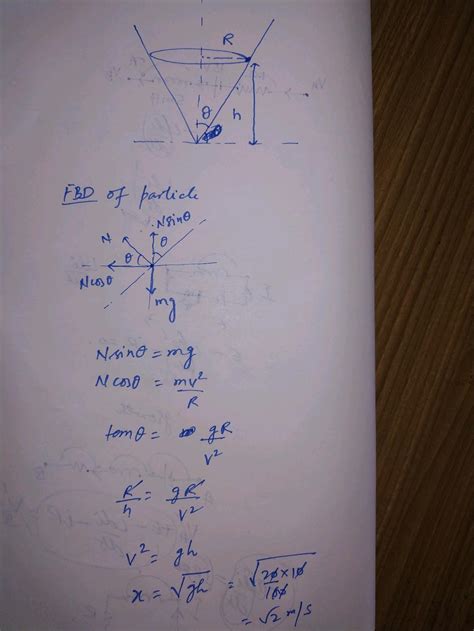 R
θ
h
FBD of particle
N sinθ
N
θ
θ
N cosθ
mg
N sinθ = mg
N cosθ = mv²/R
tanθ = gR/v²
R/h = gR/v²
v² = gh
x = √gh = √(20×10/100)
= √2 m/s